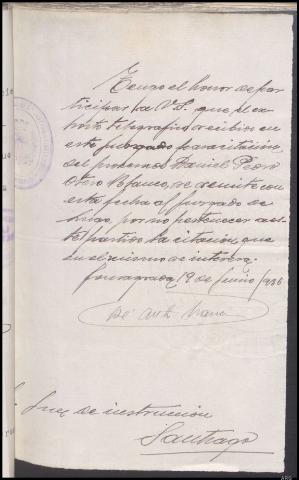 Tengo el honor de par-
ticipar a V.S. que el ex-
horto telegrafico recibido en
este juzgado para citación
del procesado Daniel Pedro
Otero Blanco, se remite con
esta fecha al juzgado de
Lugo, por no pertenecer a es-
te partido la citación que
en el mismo se interesa.
Fonsagrada 19 de Junio 1936
Juez de instruccion
Santiago
ARG